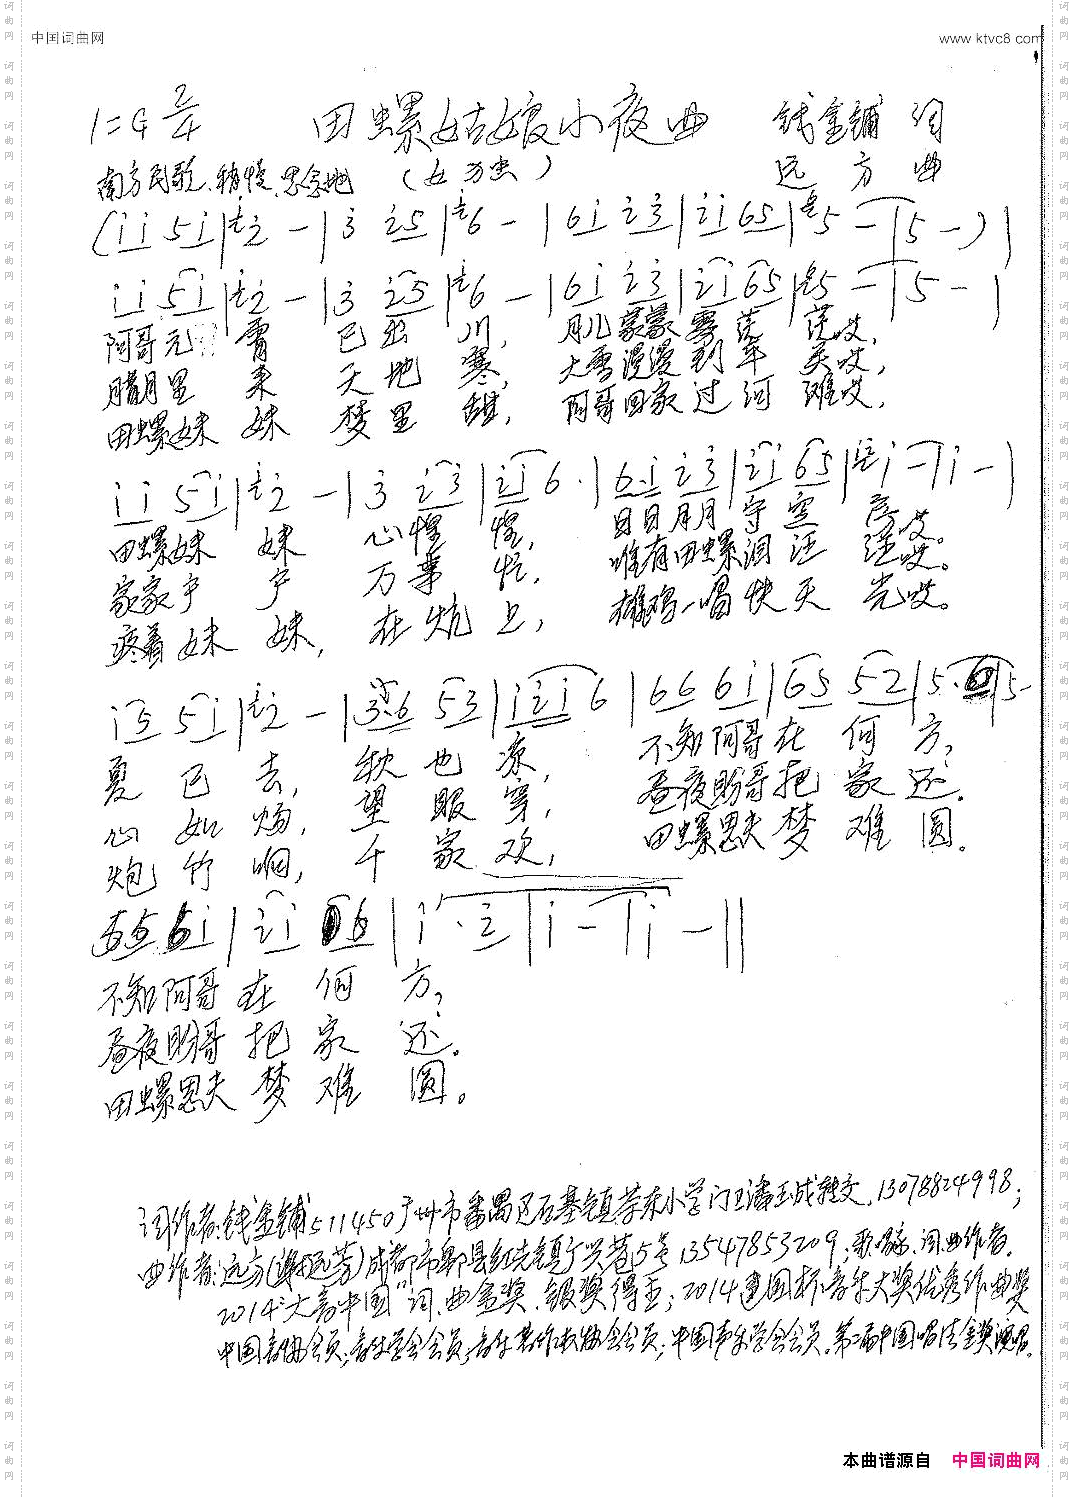 中国词曲网
www ktvc8 com
1=G 2/4 田螺姑娘小夜曲 钱金铺 词
南方民歌、稍慢、思念地 (女独) 远方 曲
(i i 5 i | i 2 - | 3 2 5 | i 6 - | 6 i 2 3 | 2 i 6 5 | 5 - | 5 - ) |
i i 5 i | i 2 - | 3 2 5 | i 6 - | 6 i 2 3 | 2 i 6 5 | 5 - | 5 - |
阿哥元 宵 已出 川, 月儿蒙蒙雾茫 茫哎,
腊月里 来 天地 寒, 大雪漫漫到年 关哎,
田螺妹 妹 梦里 甜, 阿哥回家过河 难哎,
i i 5 i | i 2 - | 3 2 3 | 2 i 6 · | 6 · i 2 3 | 2 i 6 5 | i - | i - |
田螺妹 妹 心惶 惶, 日日月月守空 房哎。
家家户 户 万事 忙, 唯有田螺泪汪 汪哎。
疼着妹 妹, 在炕 上, 雄鸡一唱快天 光哎。
i 5 5 i | i 2 - | 3 · 6 5 3 | i 2 i 6 | 6 6 6 i | 6 5 5 2 | 5 · 6 | 5 -
夏 已 去, 秋 也 凉, 不知阿哥在 何 方?
心 如 炀, 望 眼 穿, 昼夜盼哥把 家 还。
炮 竹 响, 千 家 欢, 田螺思夫梦 难 圆。
5 5 6 i | 2 i 6 | i · 2 | i - | i - ||
不知阿哥 在 何 方?
昼夜盼哥 把 家 还。
田螺思夫 梦 难 圆。
词作者:钱金铺511450广州市番禺区石基镇茶东小学门卫潘玉成转交,13078824998;
曲作者:远方(谢远芳)成都市郫县红光镇广兴巷5号13547853209;歌唱家、词曲作者。
2014"大音中国"词、曲金奖、银奖得主;2014建国杯音乐大奖优秀作曲奖
中国音协会员;音乐学会会员;音乐著作权协会会员;中国声乐学会会员。第二届中国唱法金奖演唱。
本曲谱源自 中国词曲网